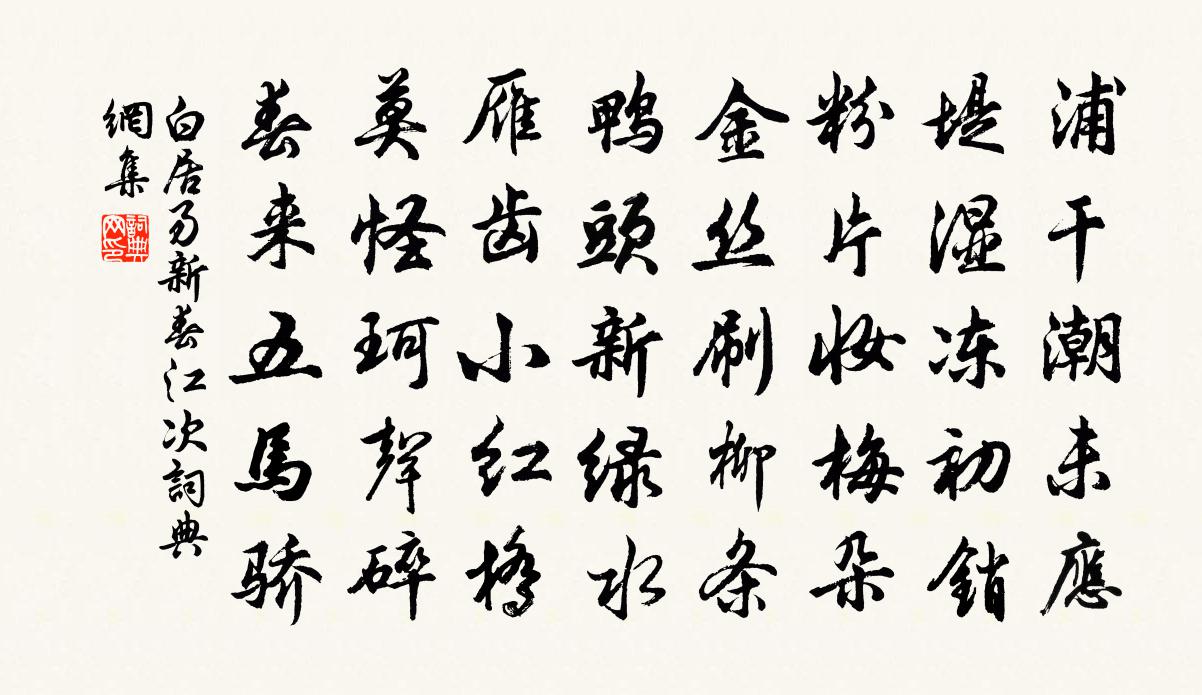 浦干潮未應
堤湿冻初銷
粉片妆梅朵
金丝刷柳条
鸭頭新绿水
雁齿小红橋
莫怪珂聲碎
春来五馬骄
白居易新春江次詞典
網集
詞典網印